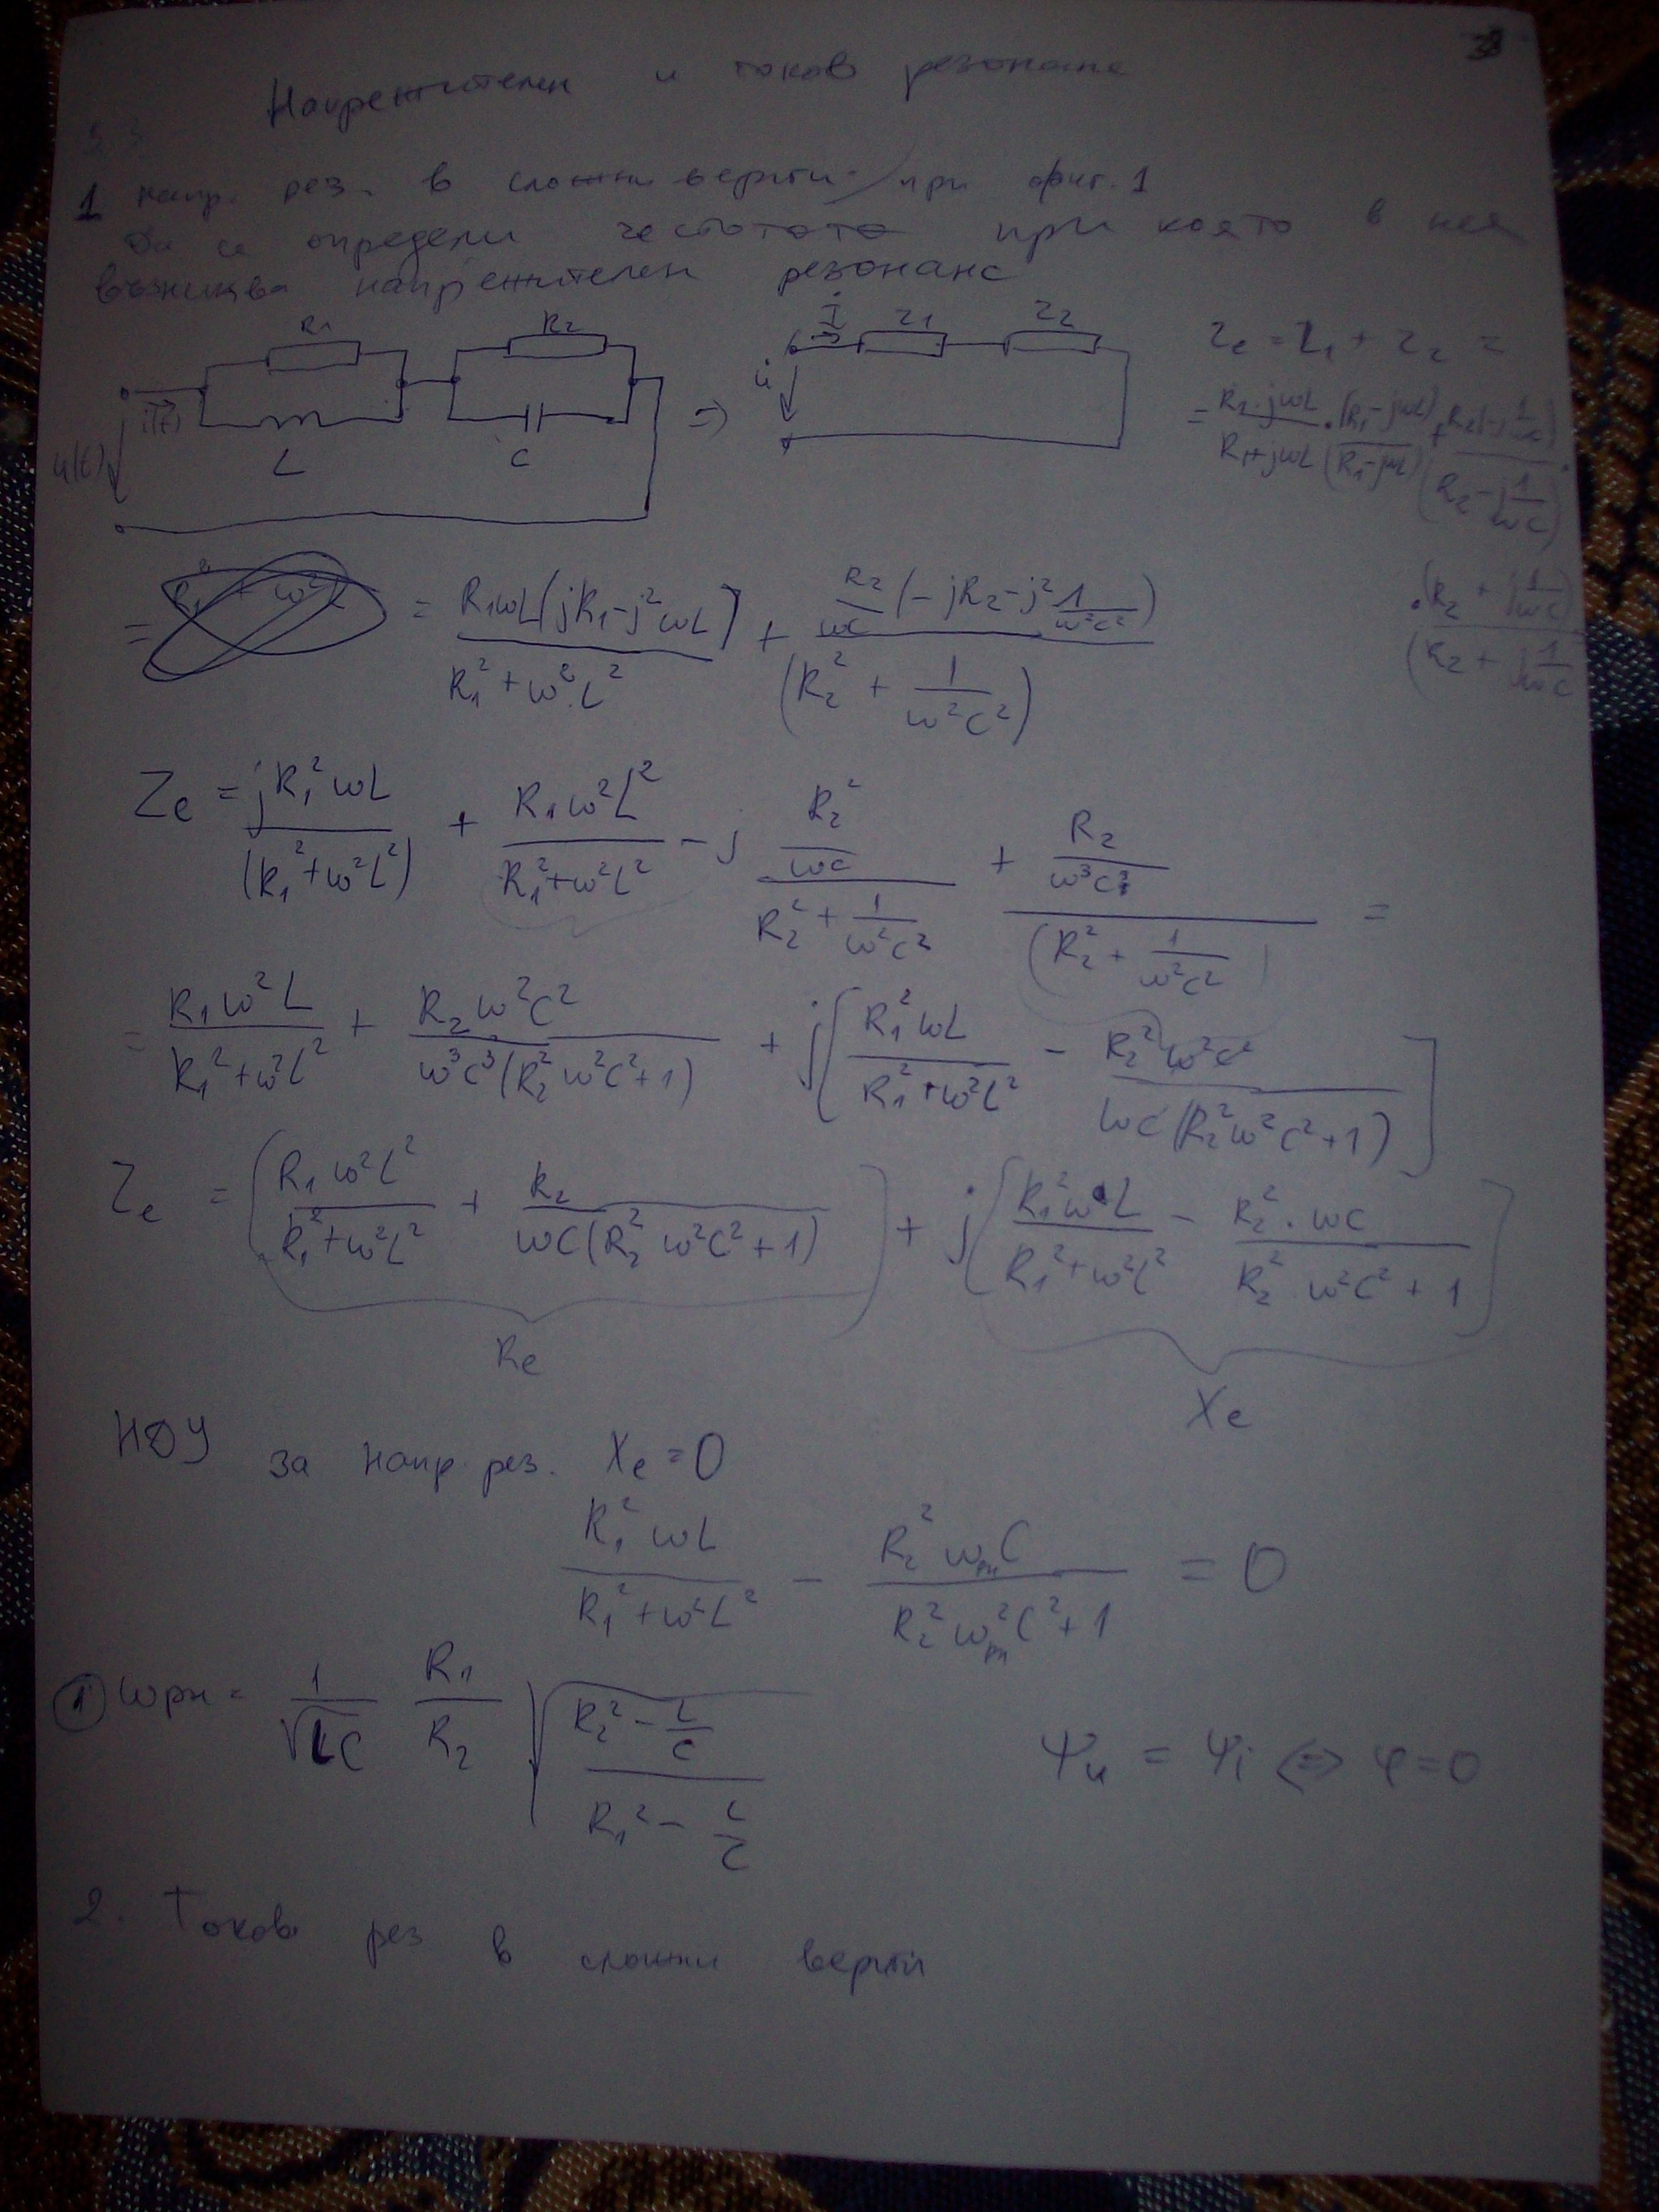 38
Напрежителен и токов резонанс
5.3
1 Напр. рез. в сложни вериги при фиг. 1
Да се определи честотата при която в нея
възниква напрежителен резонанс
R1 R2 İ Z1 Z2 Ze = Z1 + Z2 =
u(t) i(t) L C => u̇ = R1.jωL/(R1+jωL) . (R1-jωL)/(R1-jωL) + R2(-j 1/ωC)/(R2 - j 1/ωC) .
. (R2 + j 1/ωC)/(R2 + j 1/ωC)
= = R1ωL(jR1-j²ωL)/(R1²+ω²L²) + R2/ωC (-jR2-j² 1/ω²C²)/(R2² + 1/ω²C²)
Ze = jR1²ωL/(R1²+ω²L²) + R1ω²L²/(R1²+ω²L²) - j (R2²/ωC)/(R2² + 1/ω²C²) + (R2/ω³C³)/(R2² + 1/ω²C²) =
= R1ω²L/(R1²+ω²L²) + R2ω²C²/(ω³C³(R2²ω²C²+1)) + j[R1²ωL/(R1²+ω²L²) - R2²ω²C²/(ωC(R2²ω²C²+1))]
Ze = (R1ω²L²/(R1²+ω²L²) + R2/(ωC(R2²ω²C²+1))) + j[R1²ωL/(R1²+ω²L²) - R2².ωC/(R2²ω²C²+1)]
Re Xe
НДУ за напр. рез. Xe = 0
R1²ωL/(R1²+ω²L²) - R2²ωрнC/(R2²ωрн²C²+1) = 0
① ωрн = 1/√LC R1/R2 √((R2² - L/C)/(R1² - L/C)) Ψu = Ψi <=> φ=0
2. Токов рез в сложни вериги